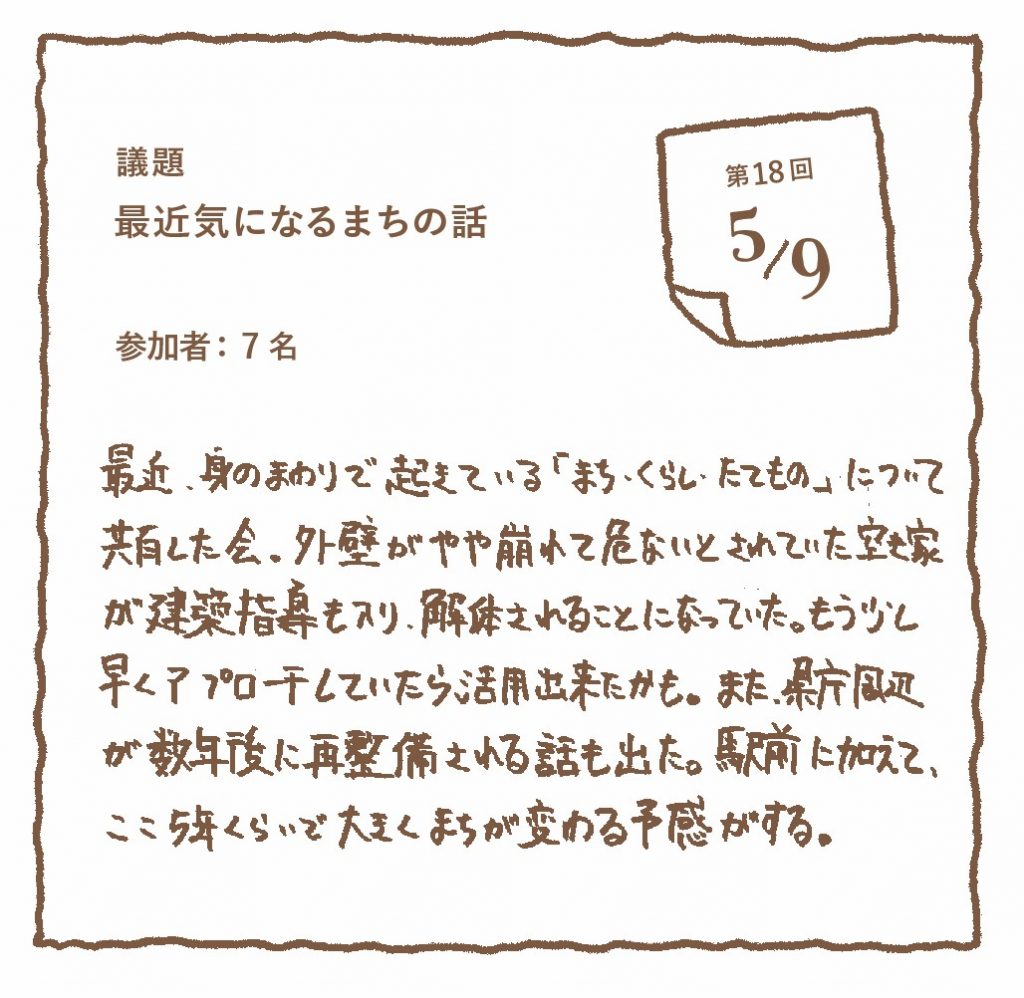 議題
最近気になるまちの話
第18回
5/9
参加者：7名
最近、身のまわりで起きている「まち・くらし・たてもの」について
共有した会。外壁がやや崩れて危ないとされていた空き家
が建築指導も入り、解体されることになっていた。もう少し
早くアプローチしていたら活用出来たかも。また、県庁周辺
が数年後に再整備される話も出た。駅前に加えて、
ここ5年くらいで大きくまちが変わる予感がする。